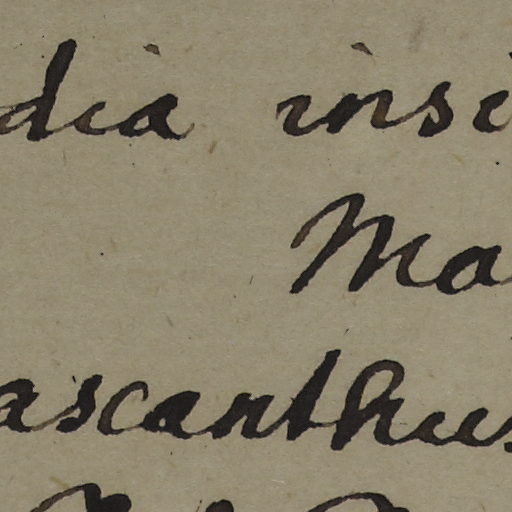 dia insi
Ma
ascanthus